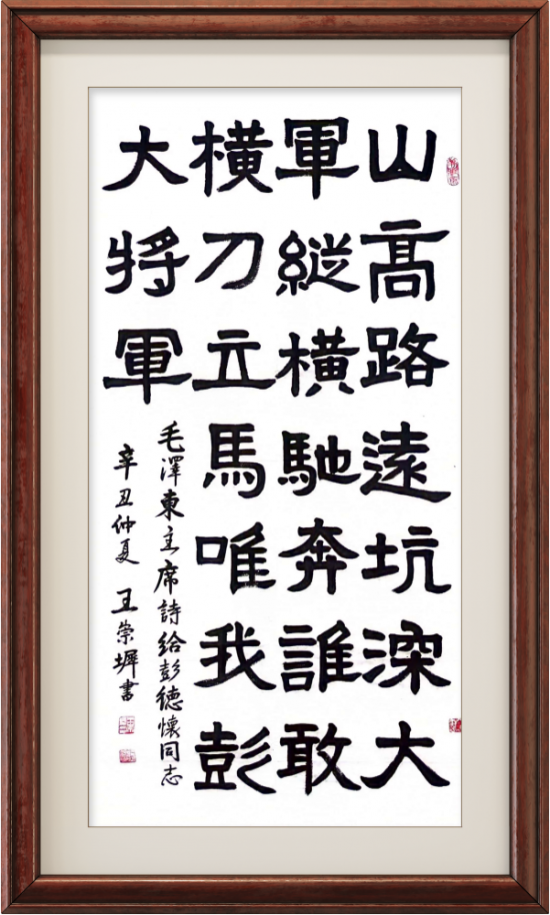 山高路遠坑深大
軍縱橫馳奔誰敢
橫刀立馬唯我彭
大將軍
毛澤東主席詩給彭德懷同志
辛丑仲夏 王崇墀書